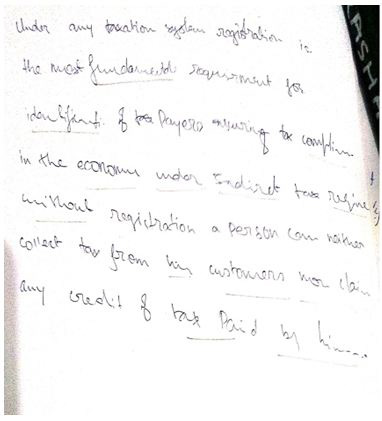 Under any taxation system registration is
the most fundamental requirment for
identificati. of tax Payers ensuring tax complian
in the economy under Indirect tax regime
without registration a person can neither
collect tax from his customers nor claim
any credit of tax Paid by him
ASH